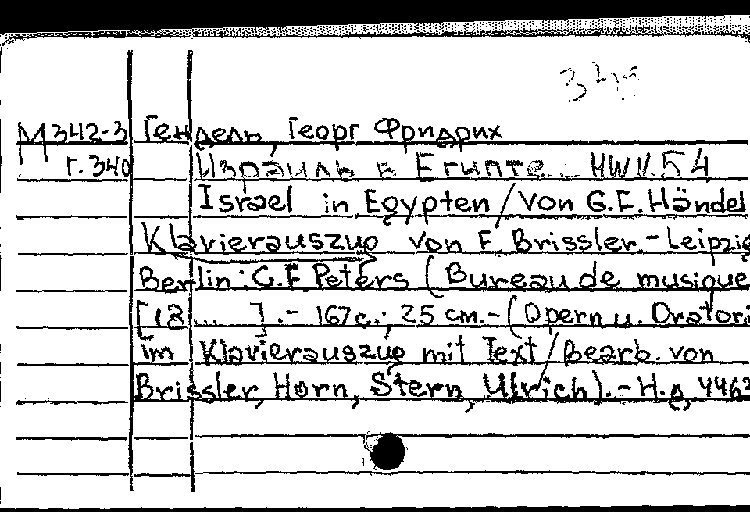 М 342-3 Гендель, Георг Фридрих
г. 340 Израиль в Египте. HWV. 54
Israel in Egypten / von G. F. Händel
Klavierauszug von F. Brissler. - Leipzig
Berlin: C. F. Peters (Bureau de musique
[18 ... ]. - 167 с.; 25 см. - (Opern u. Oratori
im Klavierauszug mit Text / Bearb. von
Brissler, Horn, Stern, Ulrich). - Н. д. 4462